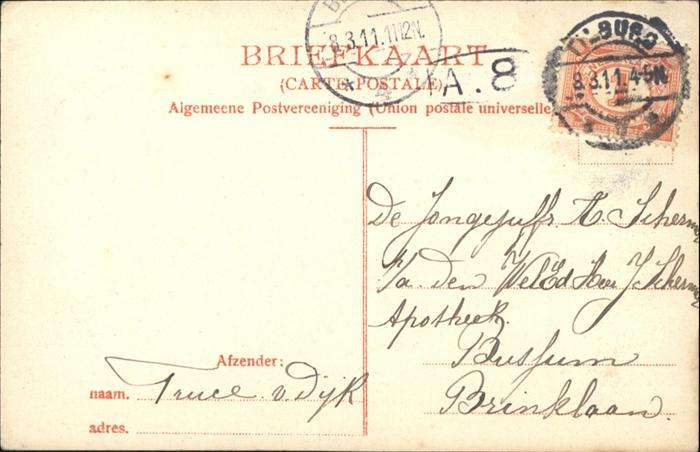 8.3.11.11-12N.
TILBURG
8.3.11.4-5N
BRIEFKAART
(CARTE POSTALE)
A.8
Algemeene Postvereeniging (Union postale universelle
De Jongejuffr. A. Scherm
p/a. den WelEd Heer J Scherm
Apotheek.
Bussum
Brinklaan.
Afzender:
naam. Truce v. Dijk
adres.